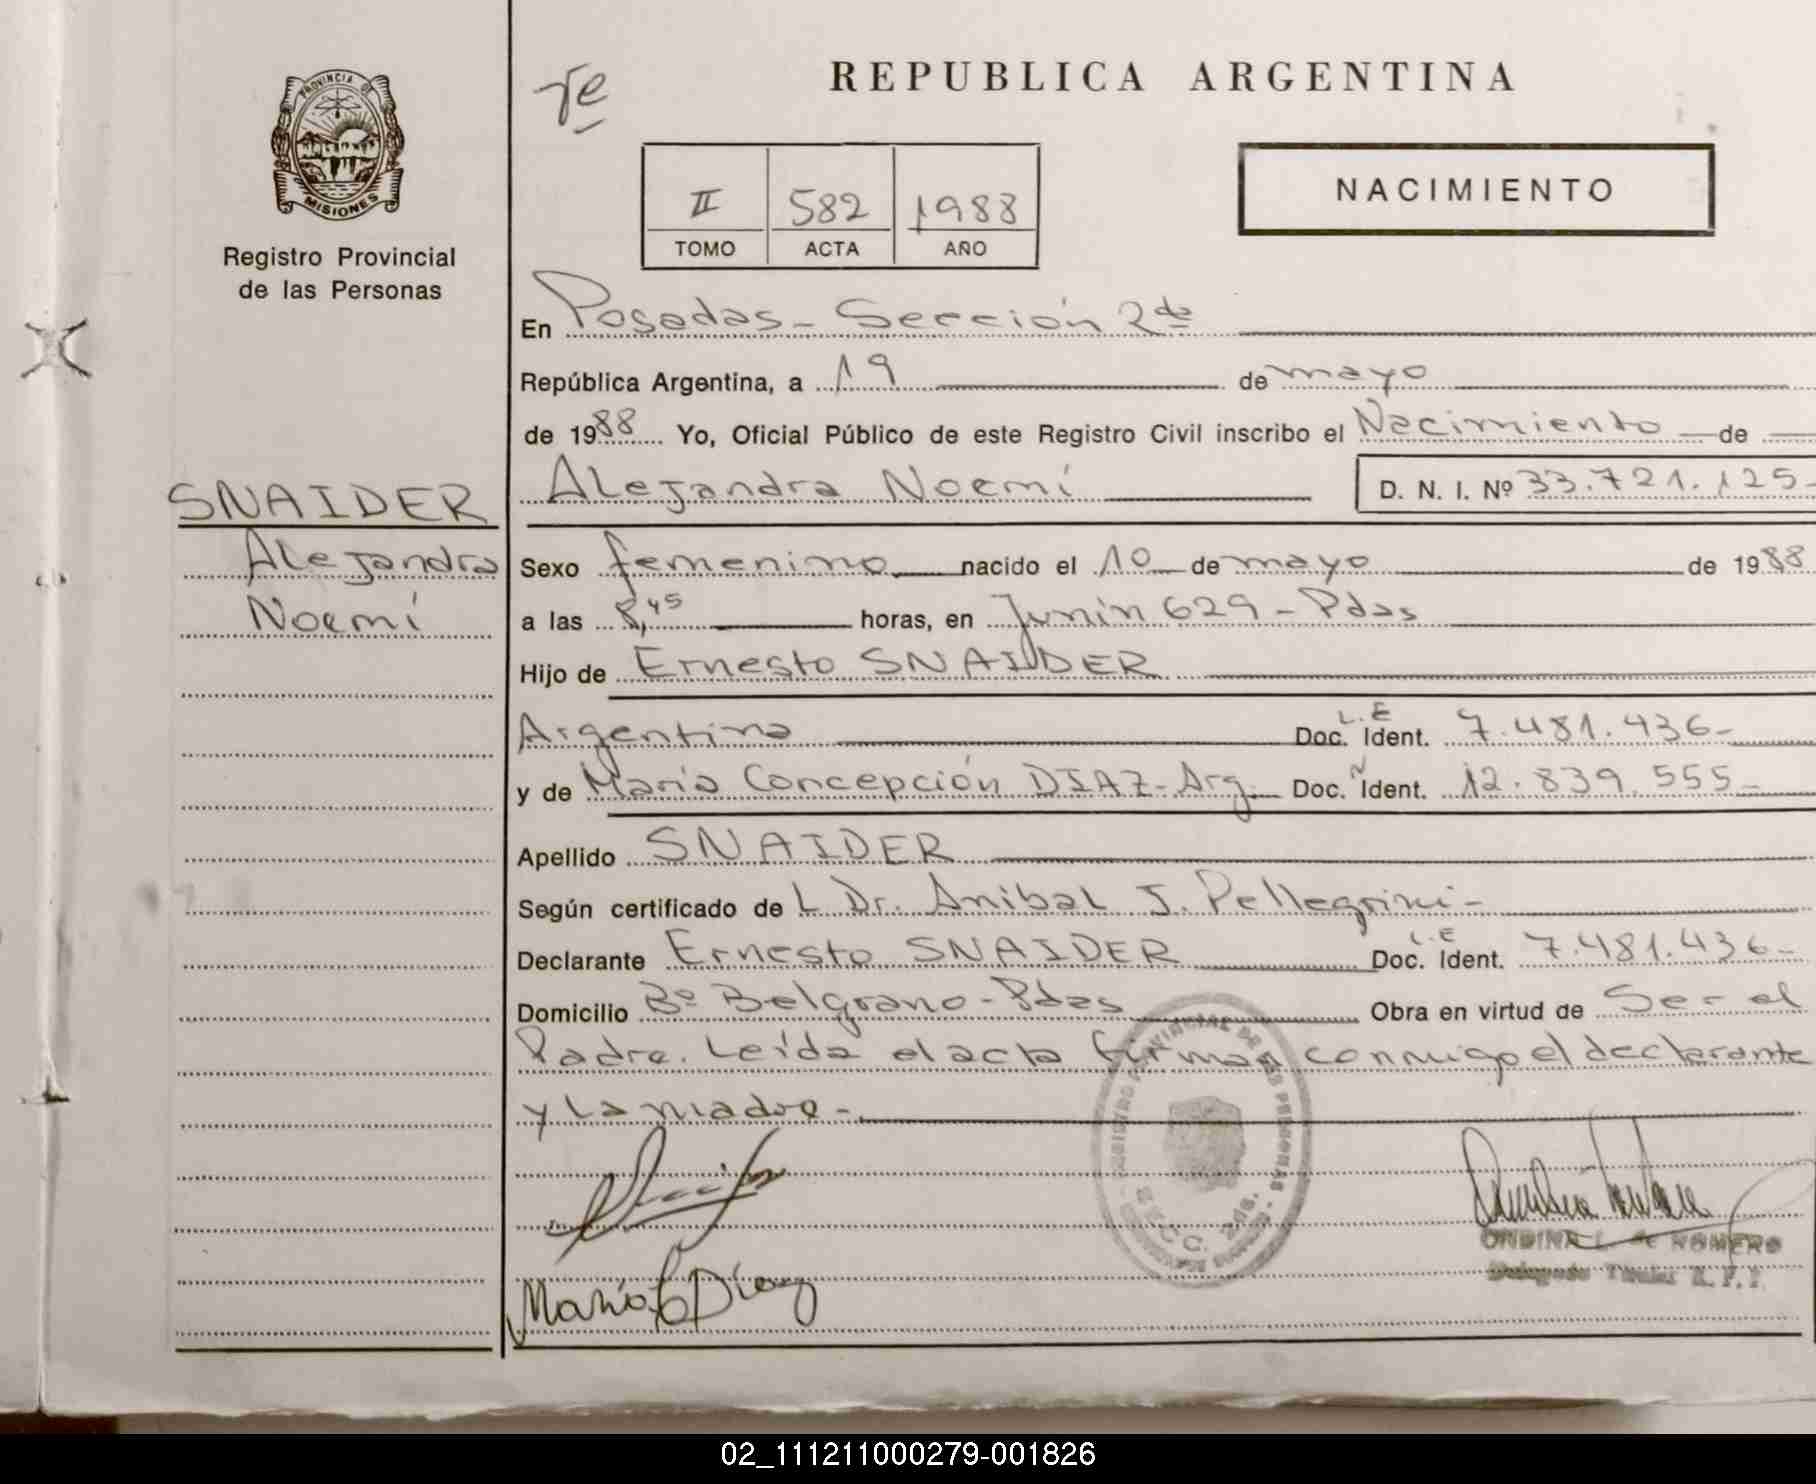 PROVINCIA DE
MISIONES
Registro Provincial
de las Personas
REPUBLICA ARGENTINA
II 582 1988
TOMO ACTA AÑO
NACIMIENTO
En Posadas - Sección 2da
República Argentina, a 19 de mayo
de 1988 Yo, Oficial Público de este Registro Civil inscribo el Nacimiento de
SNAIDER
Alejandra
Noemí
Alejandra Noemí D. N. I. Nº 33.721.125-
Sexo femenino nacido el 10 de mayo de 1988
a las 8,45 horas, en Junín 629 - Pdas
Hijo de Ernesto SNAIDER
Argentino L.E Doc. Ident. 7.481.436-
y de María Concepción DIAZ - Arg. Doc. Ident. 12.839.555-
Apellido SNAIDER
Según certificado de L Dr. Anibal J. Pellegrini -
Declarante Ernesto SNAIDER L.E Doc. Ident. 7.481.436-
Domicilio Bº Belgrano - Pdas Obra en virtud de Ser el
Padre. Leída el acta firman conmigo el declarante
y la madre -
REGISTRO PROVINCIAL DE LAS PERSONAS
SECC. 2da.
María C Díaz
ONDINA L. de ROMERO
Delegada Titular R. P. P.
02_111211000279-001826